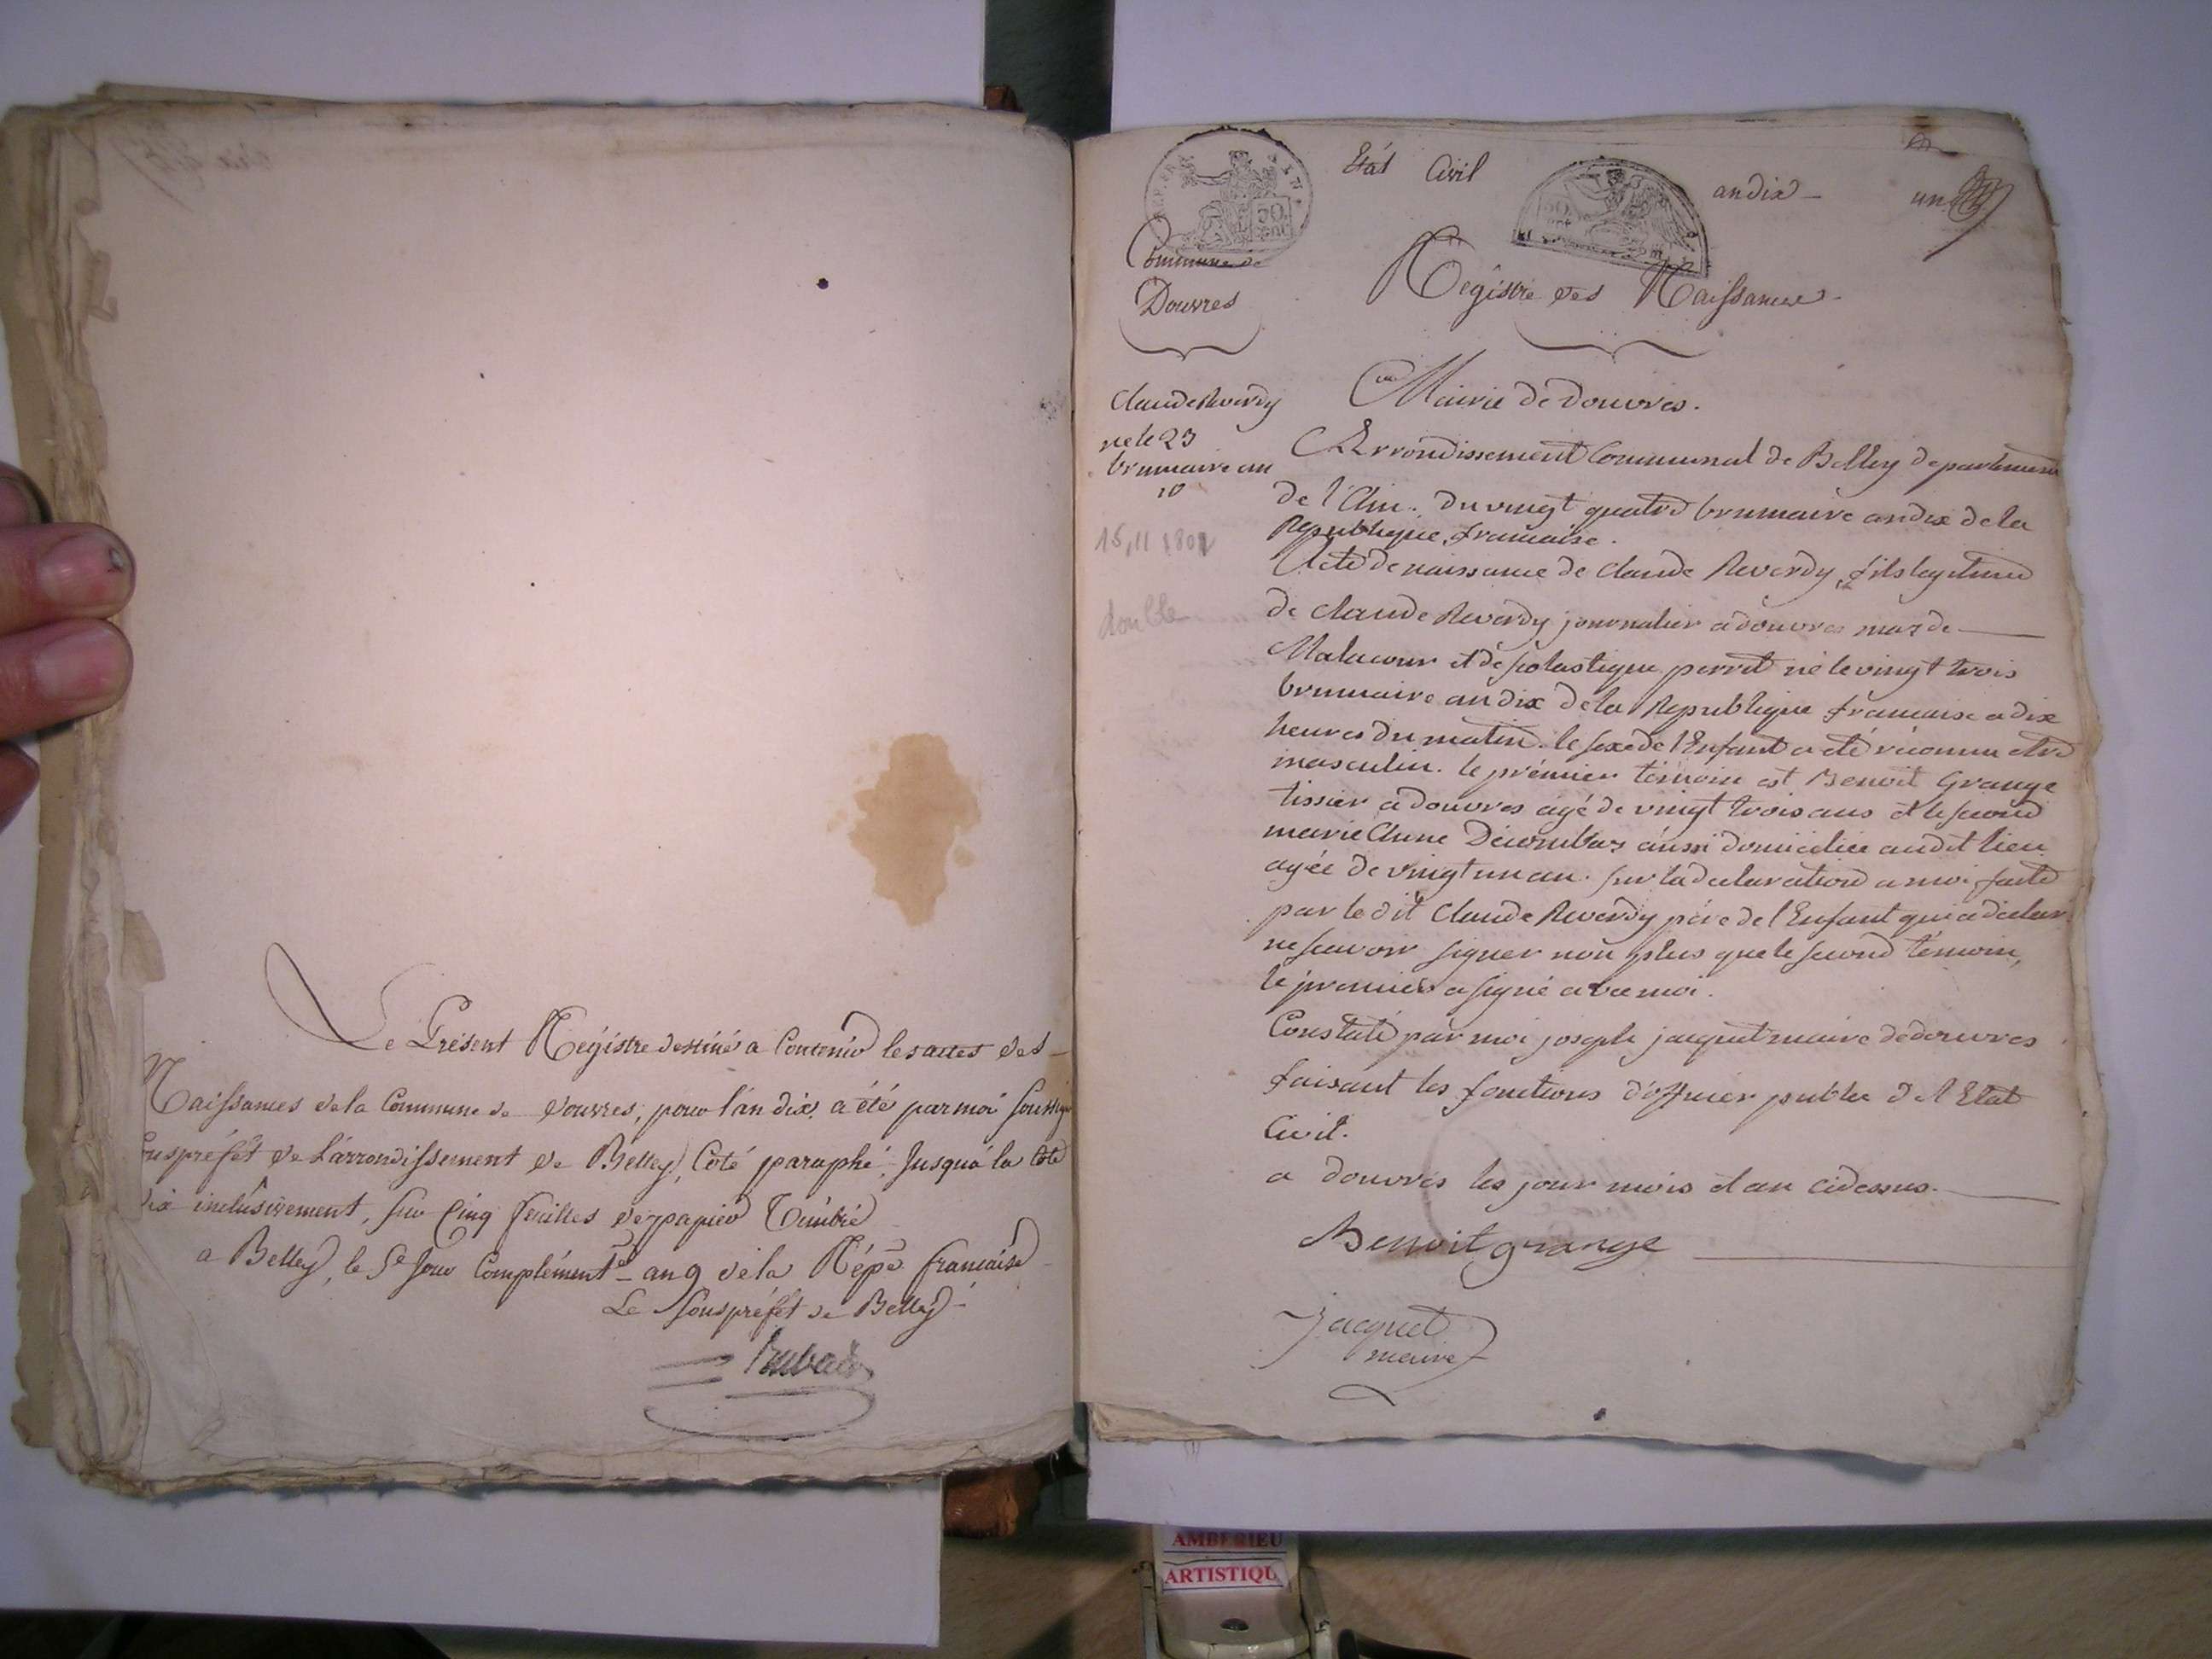 Le Présent Régistre destiné a Contenir les actes des
Naissances de la Commune de Douvres, pour l'an dix, a été par moi soussigné
souspréfet de L'arrondissement de Belley, Coté paraphé, Jusqu'à la Cote
dix inclusivement, sur Cinq feuilles de papier Timbré
a Belley, le 5e Jour Complément.re an 9 de la Répe. francaise
Le Souspréfet de Belley
Etat Civil
an dix
un
Commune de
Douvres
Régistre des Naissances
REP. FRA
50
Claude Reverdy
né le 23
brumaire an
10
15,11 1801
double
Mairie de Douvres.
Arrondissement Communal de Belley departement
de l'Ain. Du vingt quatre brumaire an dix de la
Republique francaise.
Acte de naissance de Claude Reverdy, fils legitime
de Claude Reverdy journalier a douvres mas de
Malacour et de scolastique perret né le vingt trois
brumaire an dix de la Republique francaise a dix
heures du matin. le sexe de l'Enfant a été reconnu etre
masculin. le prémier témoin est Benoit Grange
tissier a douvres agé de vingt trois ans et le second
marie Anne Décombas aussi domiciliée audit lieu
agée de vingt un an. sur la declaration a moi faite
par le dit Claude Reverdy pére de l'Enfant qui a declaré
ne scavoir signer non plus que le second témoin,
le premier a signé avec moi.
Constaté par moi joseph jacquet maire de douvres
faisant les fonctions d'officier public de l'Etat
Civil.
a douvres les jour mois et an cidessus.
Benoit grange
Jacquet
maire
AMBERIEU
ARTISTIQU